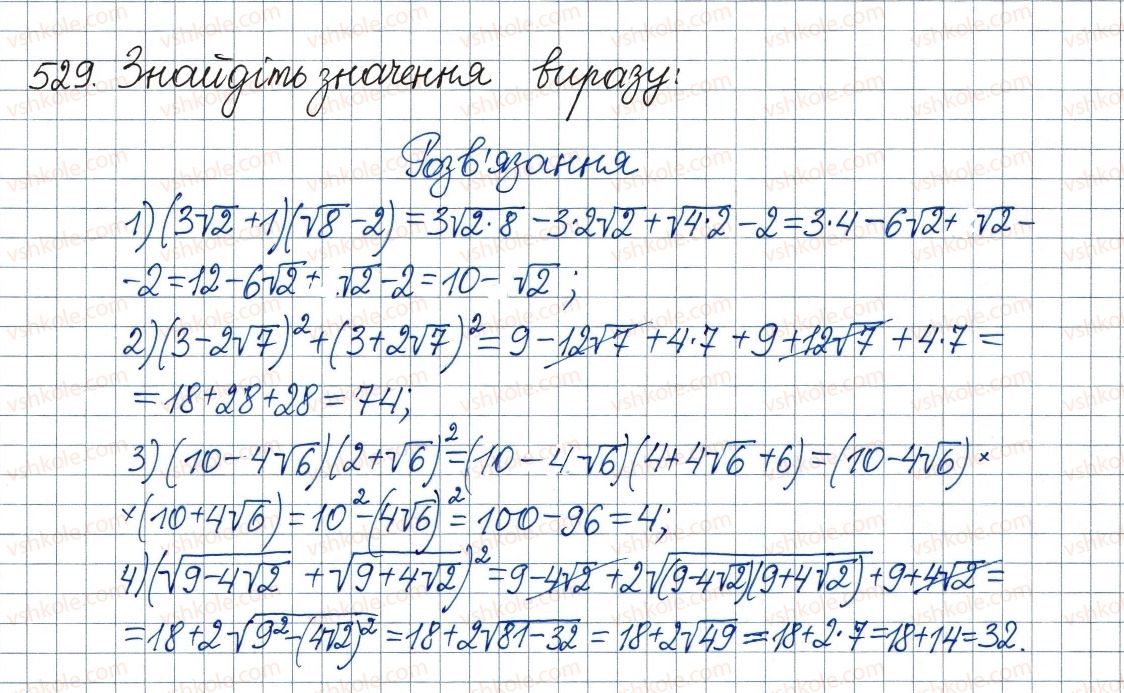 529. Знайдіть значення виразу:
Розв'язання
1) (3√2 + 1)(√8 - 2) = 3√2·8 - 3·2√2 + √4·2 - 2 = 3·4 - 6√2 + √2 -
- 2 = 12 - 6√2 + √2 - 2 = 10 - √2 ;
2) (3 - 2√7)² + (3 + 2√7)² = 9 - 12√7 + 4·7 + 9 + 12√7 + 4·7 =
= 18 + 28 + 28 = 74;
3) (10 - 4√6)(2 + √6)² = (10 - 4√6)(4 + 4√6 + 6) = (10 - 4√6) ×
× (10 + 4√6) = 10² - (4√6)² = 100 - 96 = 4;
4) (√9 - 4√2 + √9 + 4√2)² = 9 - 4√2 + 2√(9 - 4√2)(9 + 4√2) + 9 + 4√2 =
= 18 + 2√9² - (4√2)² = 18 + 2√81 - 32 = 18 + 2√49 = 18 + 2·7 = 18 + 14 = 32.